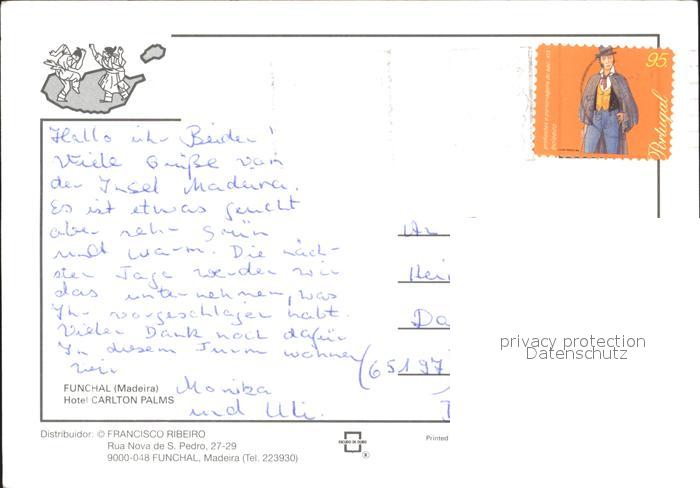 Hallo ihr Beiden!
Viele Grüße von
der Insel Madeira.
Es ist etwas feucht
aber sehr Grün
und warm. Die näch-
sten Tage werden wir
das unternehmen, was
Ihr vorgeschlagen habt.
Vielen Dank noch dafür
In diesem Turm wohnen
wir
Monika
und Uli.
FUNCHAL (Madeira)
Hotel CARLTON PALMS
Distribuidor: © FRANCISCO RIBEIRO
Rua Nova de S. Pedro, 27-29
9000-048 FUNCHAL, Madeira (Tel. 223930)
ESCUDO DE OURO
®
Printed
95.
Portugal
An
Hei
Da
(65197)
privacy protection
Datenschutz